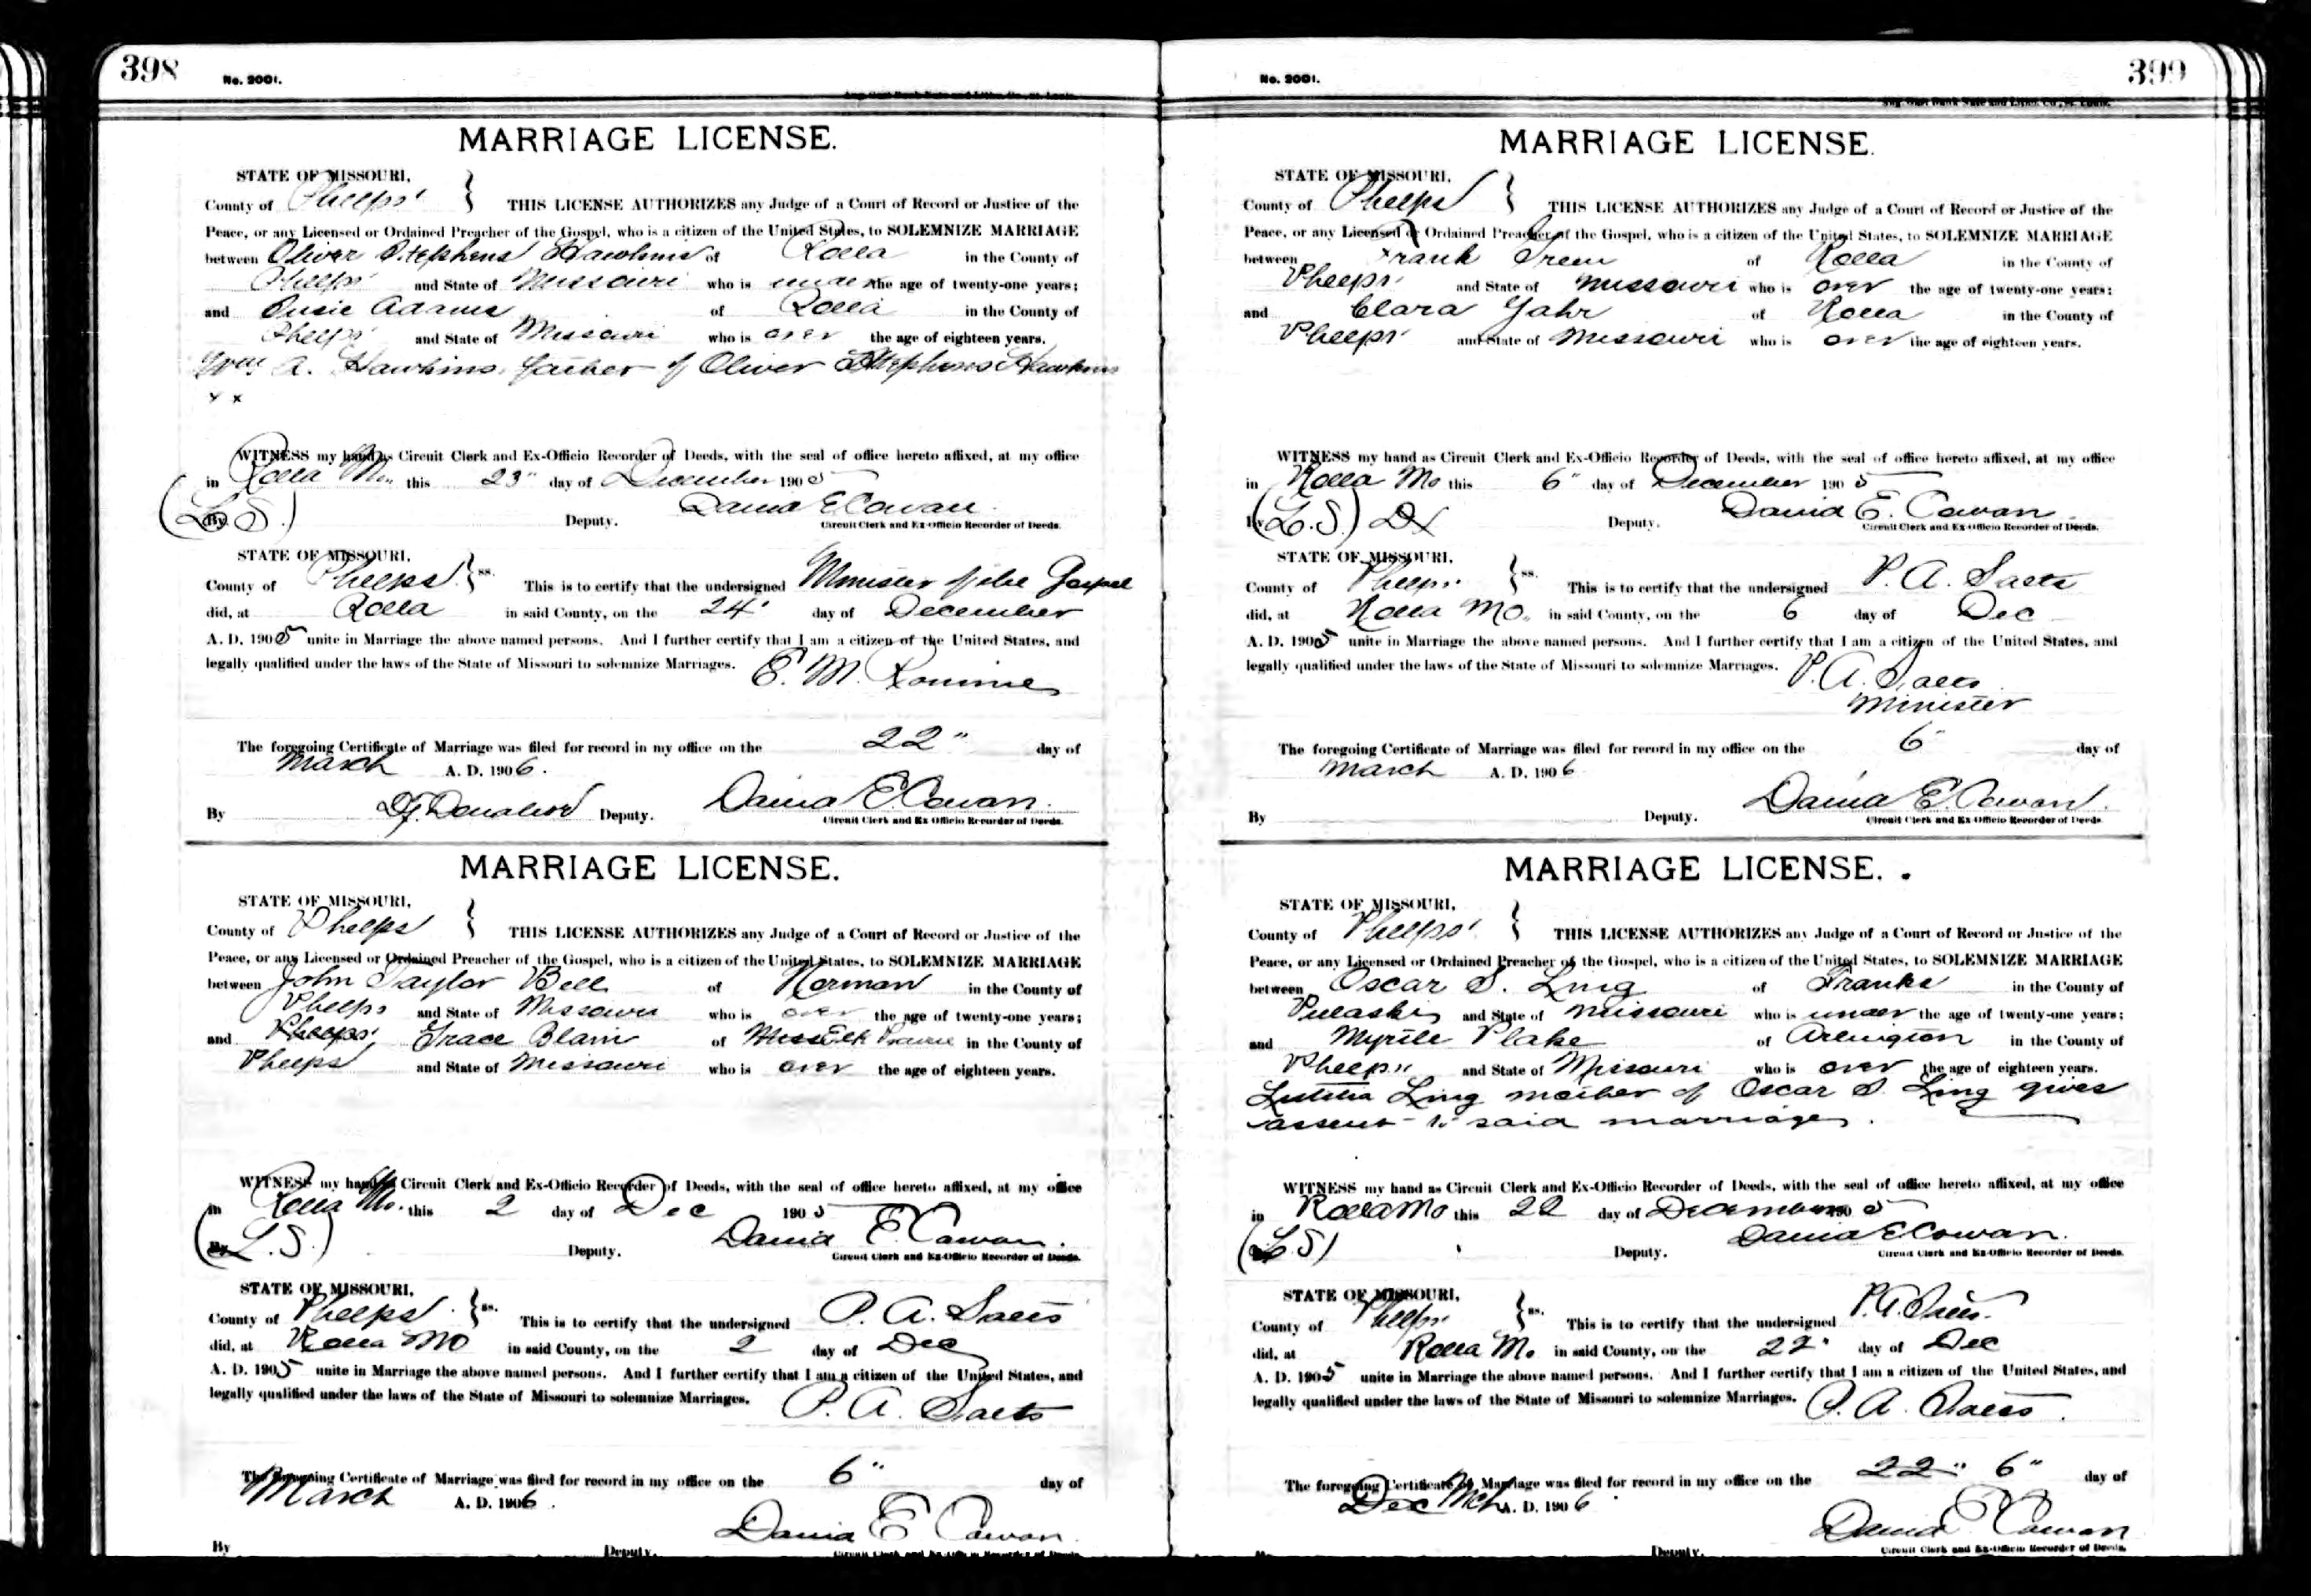 398
No. 2001.
MARRIAGE LICENSE.
STATE OF MISSOURI,
County of Phelps } THIS LICENSE AUTHORIZES any Judge of a Court of Record or Justice of the
Peace, or any Licensed or Ordained Preacher of the Gospel, who is a citizen of the United States, to SOLEMNIZE MARRIAGE
between Oliver Stephens Hawkins of Rolla in the County of
Phelps and State of Missouri who is under the age of twenty-one years;
and Susie Adams of Rolla in the County of
Phelps and State of Missouri who is over the age of eighteen years.
Wm A. Hawkins father of Oliver Stephens Hawkins
x x
WITNESS my hand as Circuit Clerk and Ex-Officio Recorder of Deeds, with the seal of office hereto affixed, at my office
in Rolla Mo. this 23" day of December 1905
(L.S.) By Deputy. David E Cowan
Circuit Clerk and Ex-Officio Recorder of Deeds.
STATE OF MISSOURI,
County of Phelps } ss. This is to certify that the undersigned Minister of the Gospel
did, at Rolla in said County, on the 24" day of December
A. D. 1905 unite in Marriage the above named persons. And I further certify that I am a citizen of the United States, and
legally qualified under the laws of the State of Missouri to solemnize Marriages. E. M. Romine
The foregoing Certificate of Marriage was filed for record in my office on the 22" day of
March A. D. 1906.
By Deputy. David E. Cowan.
Circuit Clerk and Ex Officio Recorder of Deeds.
MARRIAGE LICENSE.
STATE OF MISSOURI,
County of Phelps } THIS LICENSE AUTHORIZES any Judge of a Court of Record or Justice of the
Peace, or any Licensed or Ordained Preacher of the Gospel, who is a citizen of the United States, to SOLEMNIZE MARRIAGE
between John Taylor Bell of Norman in the County of
Phelps and State of Missouri who is over the age of twenty-one years;
and Phelps Grace Blain of Elk Prairie in the County of
Phelps and State of Missouri who is over the age of eighteen years.
WITNESS my hand as Circuit Clerk and Ex-Officio Recorder of Deeds, with the seal of office hereto affixed, at my office
in Rolla Mo. this 2 day of Dec 1905
By (L.S.) Deputy. David E. Cowan.
Circuit Clerk and Ex-Officio Recorder of Deeds.
STATE OF MISSOURI,
County of Phelps } ss. This is to certify that the undersigned P. A.
did, at Rolla Mo in said County, on the 2 day of Dec
A. D. 1905 unite in Marriage the above named persons. And I further certify that I am a citizen of the United States, and
legally qualified under the laws of the State of Missouri to solemnize Marriages. P. A.
The foregoing Certificate of Marriage was filed for record in my office on the 6" day of
March A. D. 1906.
By Deputy. David E Cowan
399
No. 2001.
MARRIAGE LICENSE.
STATE OF MISSOURI,
County of Phelps } THIS LICENSE AUTHORIZES any Judge of a Court of Record or Justice of the
Peace, or any Licensed or Ordained Preacher of the Gospel, who is a citizen of the United States, to SOLEMNIZE MARRIAGE
between Frank of Rolla in the County of
Phelps and State of Missouri who is over the age of twenty-one years;
and Clara Jahr of Rolla in the County of
Phelps and State of Missouri who is over the age of eighteen years.
WITNESS my hand as Circuit Clerk and Ex-Officio Recorder of Deeds, with the seal of office hereto affixed, at my office
in Rolla Mo this 6" day of December 1905
By (L.S.) Deputy. David E. Cowan
Circuit Clerk and Ex-Officio Recorder of Deeds.
STATE OF MISSOURI,
County of Phelps } ss. This is to certify that the undersigned P. A.
did, at Rolla Mo. in said County, on the 6 day of Dec
A. D. 1905 unite in Marriage the above named persons. And I further certify that I am a citizen of the United States, and
legally qualified under the laws of the State of Missouri to solemnize Marriages. P. A.
Minister
The foregoing Certificate of Marriage was filed for record in my office on the 6" day of
March A. D. 1906
By Deputy. David E. Cowan.
Circuit Clerk and Ex Officio Recorder of Deeds.
MARRIAGE LICENSE.
STATE OF MISSOURI,
County of Phelps } THIS LICENSE AUTHORIZES any Judge of a Court of Record or Justice of the
Peace, or any Licensed or Ordained Preacher of the Gospel, who is a citizen of the United States, to SOLEMNIZE MARRIAGE
between Oscar S. Ling of Franks in the County of
Pulaski and State of Missouri who is under the age of twenty-one years;
and Myrtle Plake of Arlington in the County of
Phelps and State of Missouri who is over the age of eighteen years.
Lutitia Ling mother of Oscar S. Ling gives
assent to said marriage.
WITNESS my hand as Circuit Clerk and Ex-Officio Recorder of Deeds, with the seal of office hereto affixed, at my office
in Rolla Mo this 22 day of December 1905
(L.S) Deputy. David E Cowan.
Circuit Clerk and Ex-Officio Recorder of Deeds.
STATE OF MISSOURI,
County of Phelps } ss. This is to certify that the undersigned P. A.
did, at Rolla Mo. in said County, on the 22" day of Dec
A. D. 1905 unite in Marriage the above named persons. And I further certify that I am a citizen of the United States, and
legally qualified under the laws of the State of Missouri to solemnize Marriages. P. A.
The foregoing Certificate of Marriage was filed for record in my office on the 22" 6" day of
Dec Mch A. D. 1906
Deputy. David E Cowan
Circuit Clerk and Ex-Officio Recorder of Deeds.